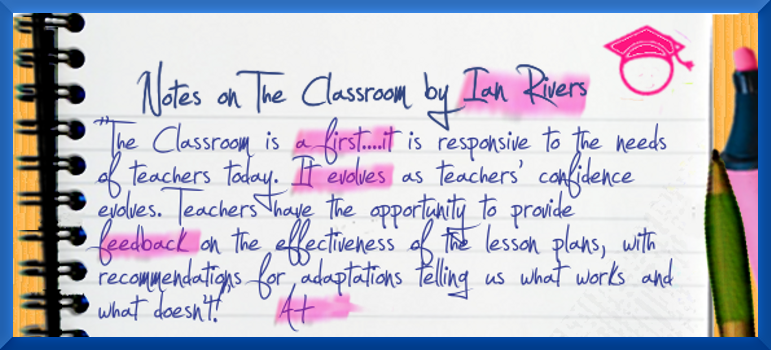 Notes on The Classroom by Ian Rivers
"The Classroom is a first....it is responsive to the needs
of teachers today. It evolves as teachers' confidence
evolves. Teachers have the opportunity to provide
feedback on the effectiveness of the lesson plans, with
recommendations for adaptations telling us what works and
what doesn't!" A+